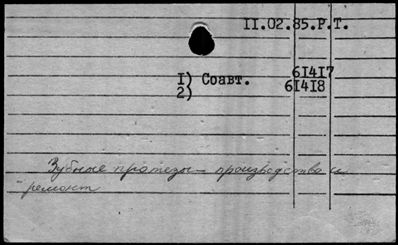 II.02.85.Р.Т.
1) Соавт. 61417
2) 61418
Зубные протезы – производство и
ремонт